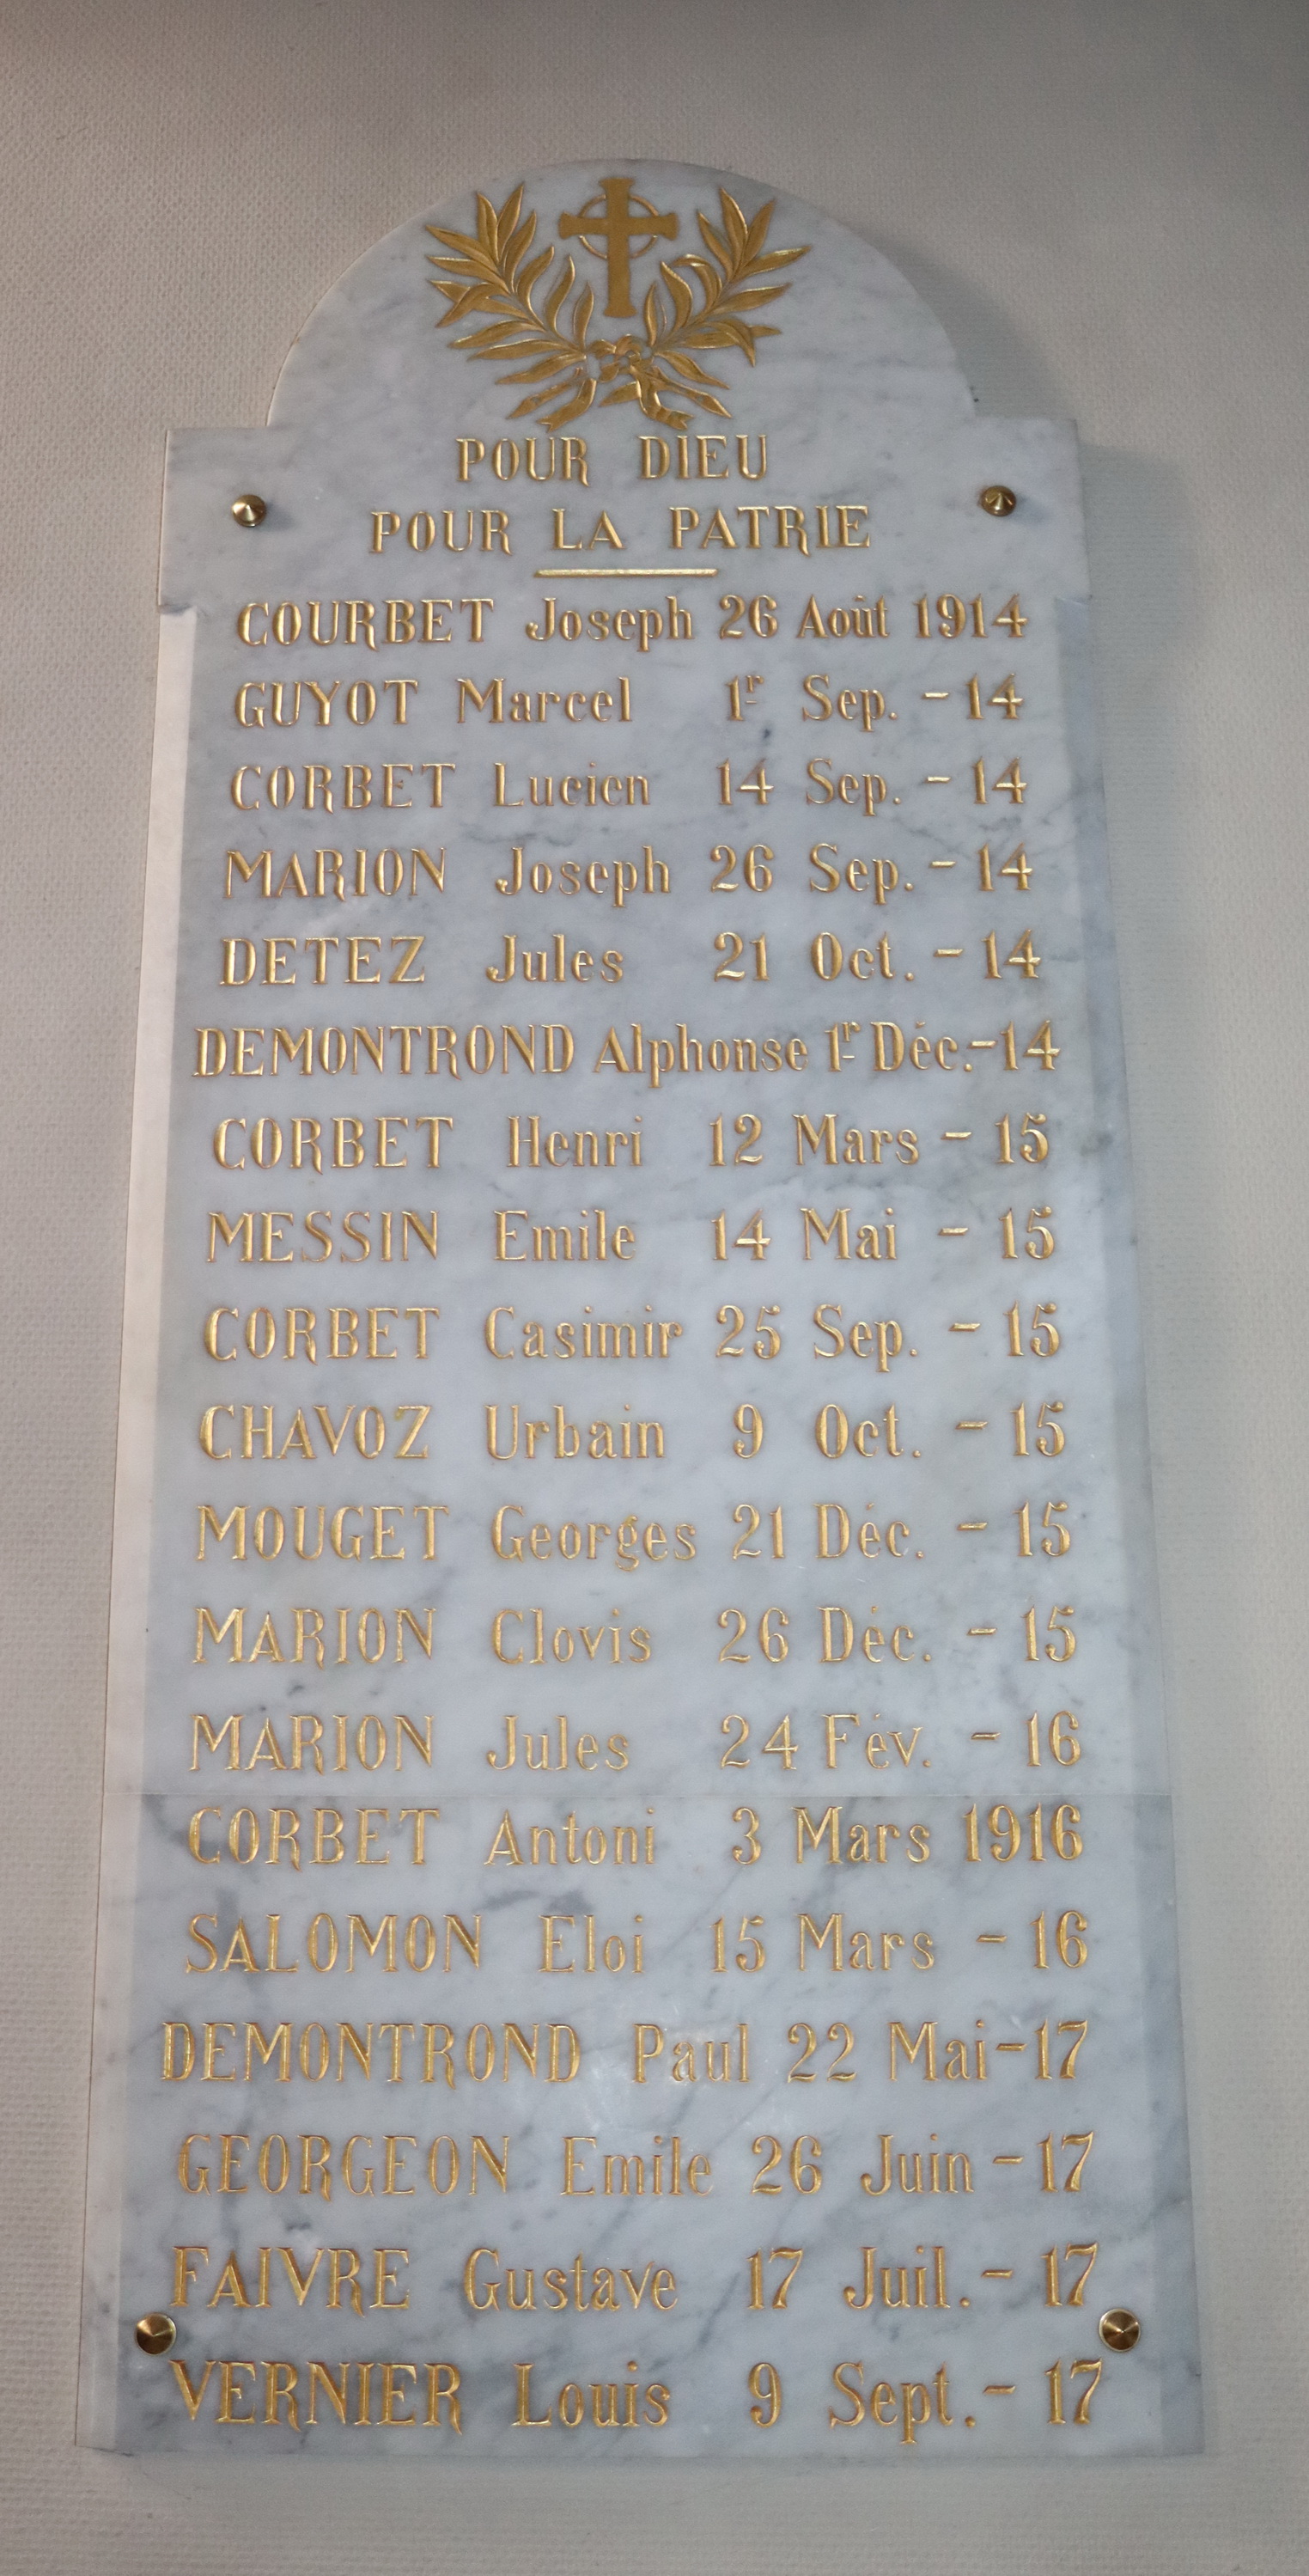 POUR DIEU
POUR LA PATRIE
COURBET Joseph 26 Août 1914
GUYOT Marcel 1r Sep. - 14
CORBET Lucien 14 Sep. - 14
MARION Joseph 26 Sep. - 14
DETEZ Jules 21 Oct. - 14
DEMONTROND Alphonse 1r Déc. - 14
CORBET Henri 12 Mars - 15
MESSIN Emile 14 Mai - 15
CORBET Casimir 25 Sep. - 15
CHAVOZ Urbain 9 Oct. - 15
MOUGET Georges 21 Déc. - 15
MARION Clovis 26 Déc. - 15
MARION Jules 24 Fév. - 16
CORBET Antoni 3 Mars 1916
SALOMON Eloi 15 Mars - 16
DEMONTROND Paul 22 Mai - 17
GEORGEON Emile 26 Juin - 17
FAIVRE Gustave 17 Juil. - 17
VERNIER Louis 9 Sept. - 17